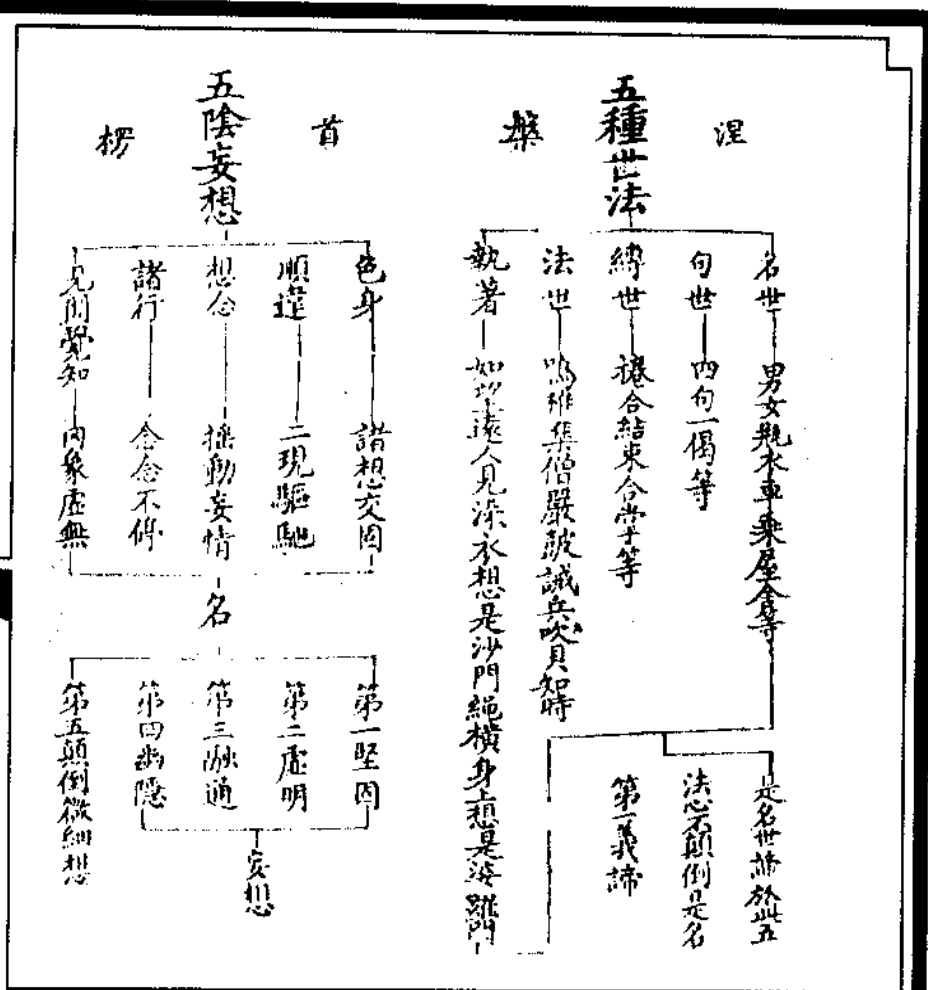 涅槃
五種世法
名世 男女瓶水車乘屋舍等
句世 四句一偈等
縛世 捲合結束合掌等
法世 鳴椎集僧嚴皷誡兵吹貝知時
執著 如望遠人見染衣想是沙門繩橫身上想是婆羅門
是名世諦於此五
法心不顛倒是名
第一義諦
首楞
五陰妄想
色身 諸想交固
順違 二現驅馳
想念 搖動妄情
諸行 念念不停
見聞覺知 內象虛無
名
第一堅固
第二虛明
第三融通
第四幽隱
妄想
第五顛倒微細想